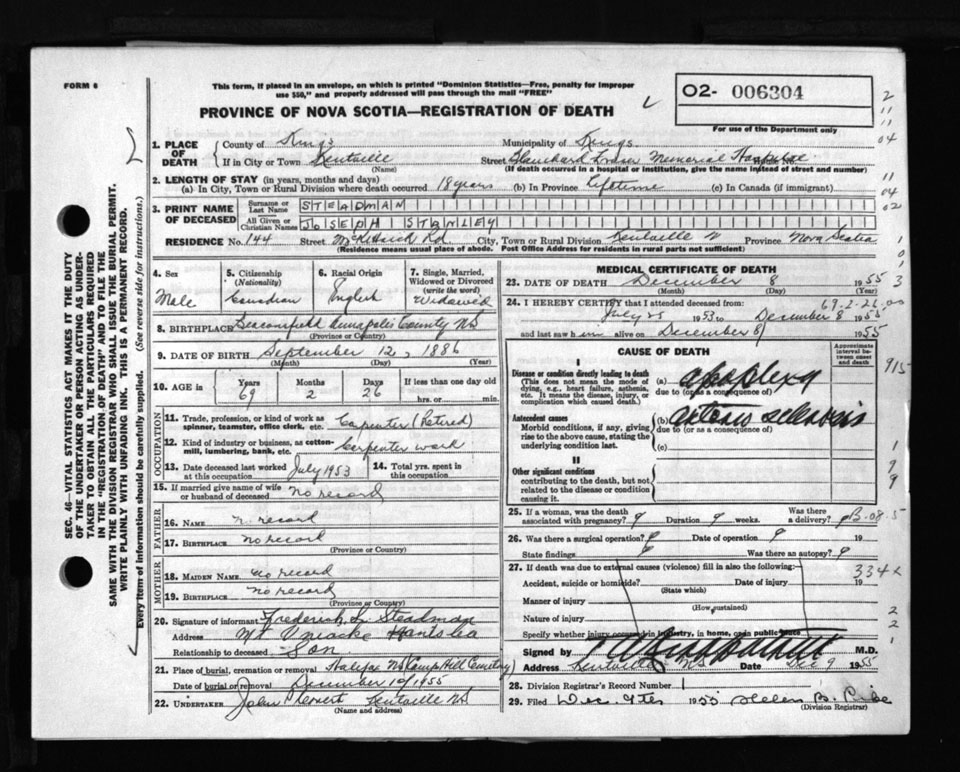 FORM 6
This form, if placed in an envelope, on which is printed "Dominion Statistics—Free, penalty for improper
use $50," and properly addressed will pass through the mail "FREE"
PROVINCE OF NOVA SCOTIA—REGISTRATION OF DEATH
02- 006304
For use of the Department only
SEC. 46—VITAL STATISTICS ACT MAKES IT THE DUTY
OF THE UNDERTAKER OR PERSON ACTING AS UNDER-
TAKER TO OBTAIN ALL THE PARTICULARS REQUIRED
IN THE "REGISTRATION OF DEATH" AND TO FILE THE
SAME WITH THE DIVISION REGISTRAR WHO SHALL ISSUE THE BURIAL PERMIT.
WRITE PLAINLY WITH UNFADING INK. THIS IS A PERMANENT RECORD.
Every item of information should be carefully supplied. (See reverse side for instructions.)
1. PLACE OF DEATH
County of Kings Municipality of Kings
If in City or Town Kentville Street Blanchard Fraser Memorial Hospital
(Name) (If death occurred in a hospital or institution, give the name instead of street and number)
2. LENGTH OF STAY (in years, months and days)
(a) In City, Town or Rural Division where death occurred 18 years (b) In Province Lifetime (c) In Canada (if immigrant)
3. PRINT NAME OF DECEASED
Surname or Last Name STEADMAN
All Given or Christian Names JOSEPH STANLEY
RESIDENCE No. 144 Street McKittrick Rd. City, Town or Rural Division Kentville Province Nova Scotia
(Residence means usual place of abode. Post Office Address for residents in rural parts not sufficient)
4. Sex Male
5. Citizenship (Nationality) Canadian
6. Racial Origin English
7. Single, Married, Widowed or Divorced (write the word) Widowed
8. BIRTHPLACE Beaconsfield Annapolis County NS
(Province or Country)
9. DATE OF BIRTH September 12, 1886
(Month) (Day) (Year)
10. AGE in Years 69 Months 2 Days 26 If less than one day old hrs. or min.
OCCUPATION
11. Trade, profession, or kind of work as spinner, teamster, office clerk, etc. Carpenter (Retired)
12. Kind of industry or business, as cotton-mill, lumbering, bank, etc. Carpenter work
13. Date deceased last worked at this occupation July 1953 14. Total yrs. spent in this occupation
15. If married give name of wife or husband of deceased No record
FATHER
16. NAME No record
17. BIRTHPLACE No record
(Province or Country)
MOTHER
18. MAIDEN NAME No record
19. BIRTHPLACE no record
(Province or Country)
20. Signature of informant Frederick L. Steadman
Address Mt Uniacke Hants Co
Relationship to deceased Son
21. Place of burial, cremation or removal Halifax NS Camp Hill Cemetery)
Date of burial or removal December 10/1955
22. UNDERTAKER John Kentville NS
(Name and address)
MEDICAL CERTIFICATE OF DEATH
23. DATE OF DEATH December 8 1955
(Month) (Day)
24. I HEREBY CERTIFY that I attended deceased from: 69-2-26
July 25 1953 to December 8 1955
and last saw him alive on December 8/ 1955
CAUSE OF DEATH
Approximate interval between onset and death
I
Disease or condition directly leading to death (a) apoplexy
(This does not mean the mode of dying, e.g., heart failure, asthenia, etc. It means the disease, injury, or complication which caused death.)
due to (or as a consequence of)
Antecedent causes (b) arterio sclerosis
Morbid conditions, if any, giving rise to the above cause, stating the underlying condition last.
due to (or as a consequence of)
(c)
II
Other significant conditions
contributing to the death, but not related to the disease or condition causing it.
25. If a woman, was the death associated with pregnancy? Duration weeks. Was there a delivery? B-08.5
26. Was there a surgical operation? Date of operation 19
State findings Was there an autopsy?
27. If death was due to external causes (violence) fill in also the following: 334
Accident, suicide or homicide? Date of injury 19
(State which)
Manner of injury
(How sustained)
Nature of injury
Specify whether injury occurred in industry, in home, or in public place
Signed by M.D.
Address Kentville NS Date Dec 9 1955
28. Division Registrar's Record Number 1
29. Filed Dec. 9th 1955 Helen B.
(Division Registrar)